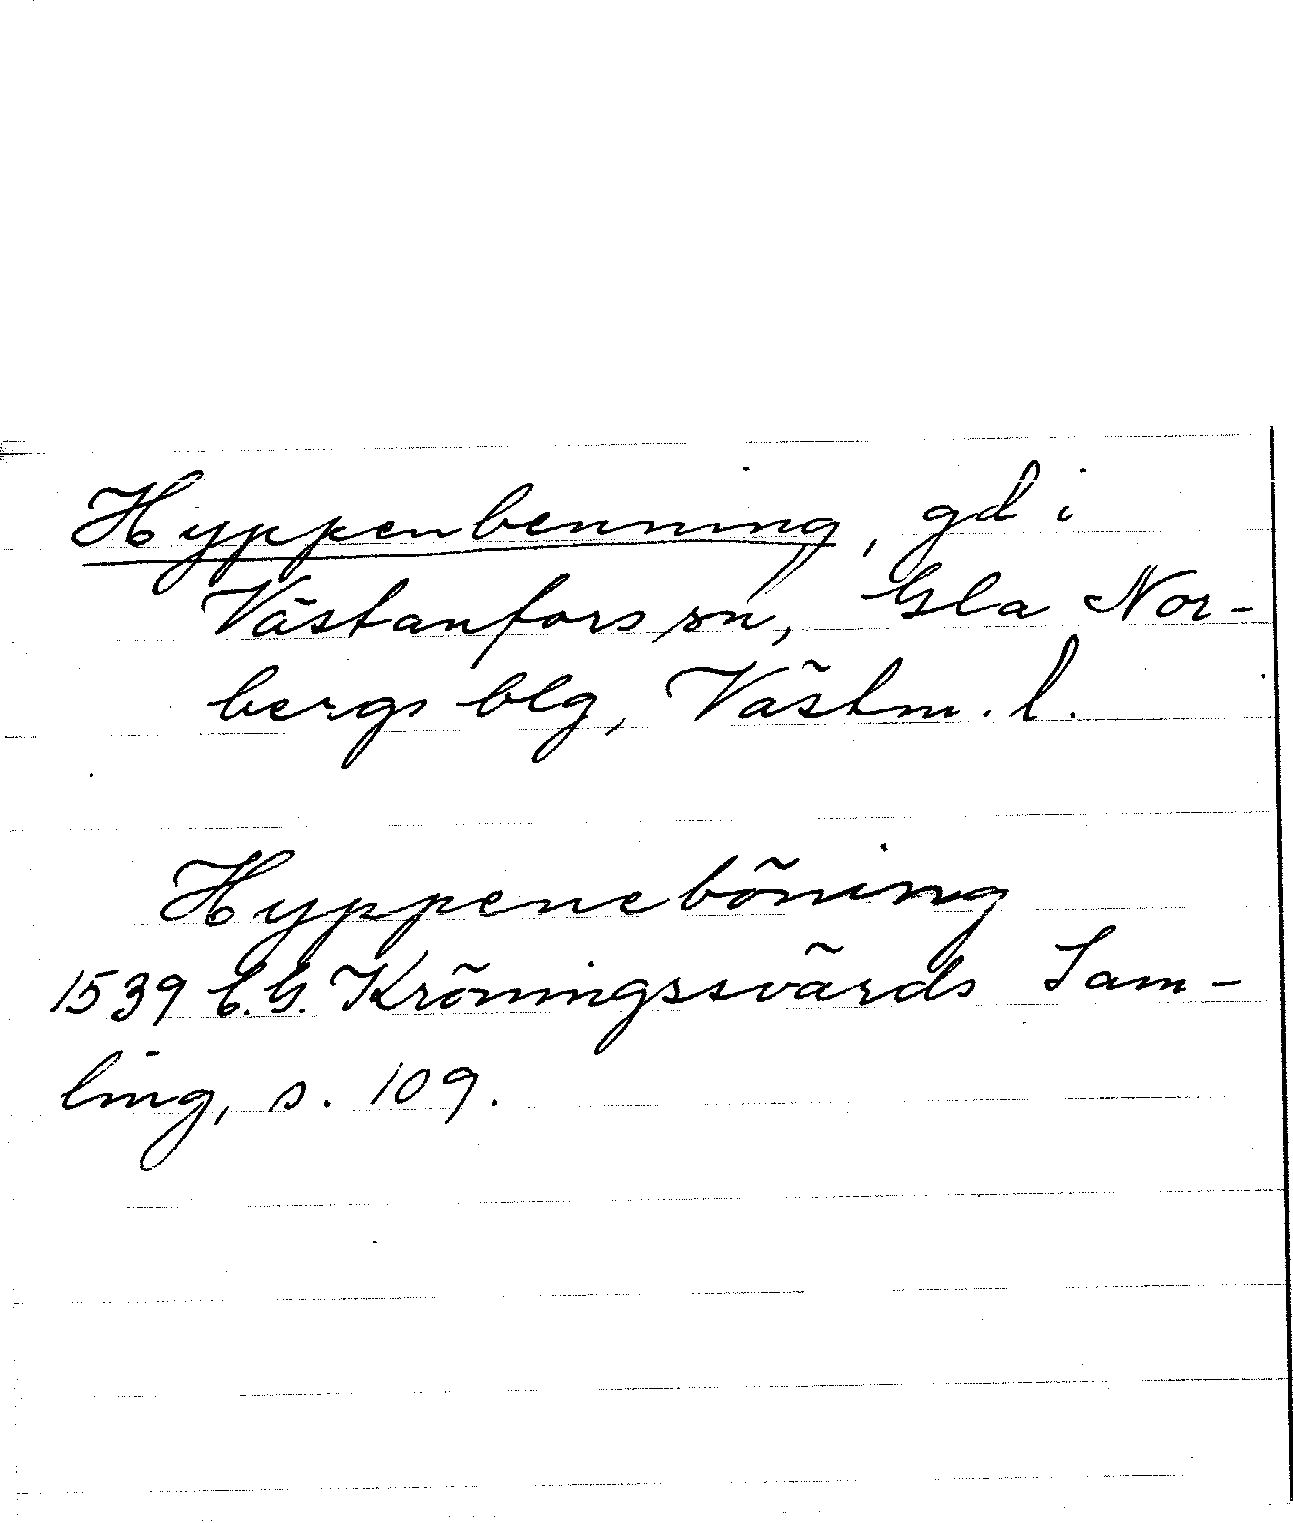 Hyppenbenning, gd i
Västanfors sn, Gla Nor-
bergs blg, Västm. l.
Hyppeneböning
1539 C.G. Kröningssvärds Sam-
ling, s. 109.